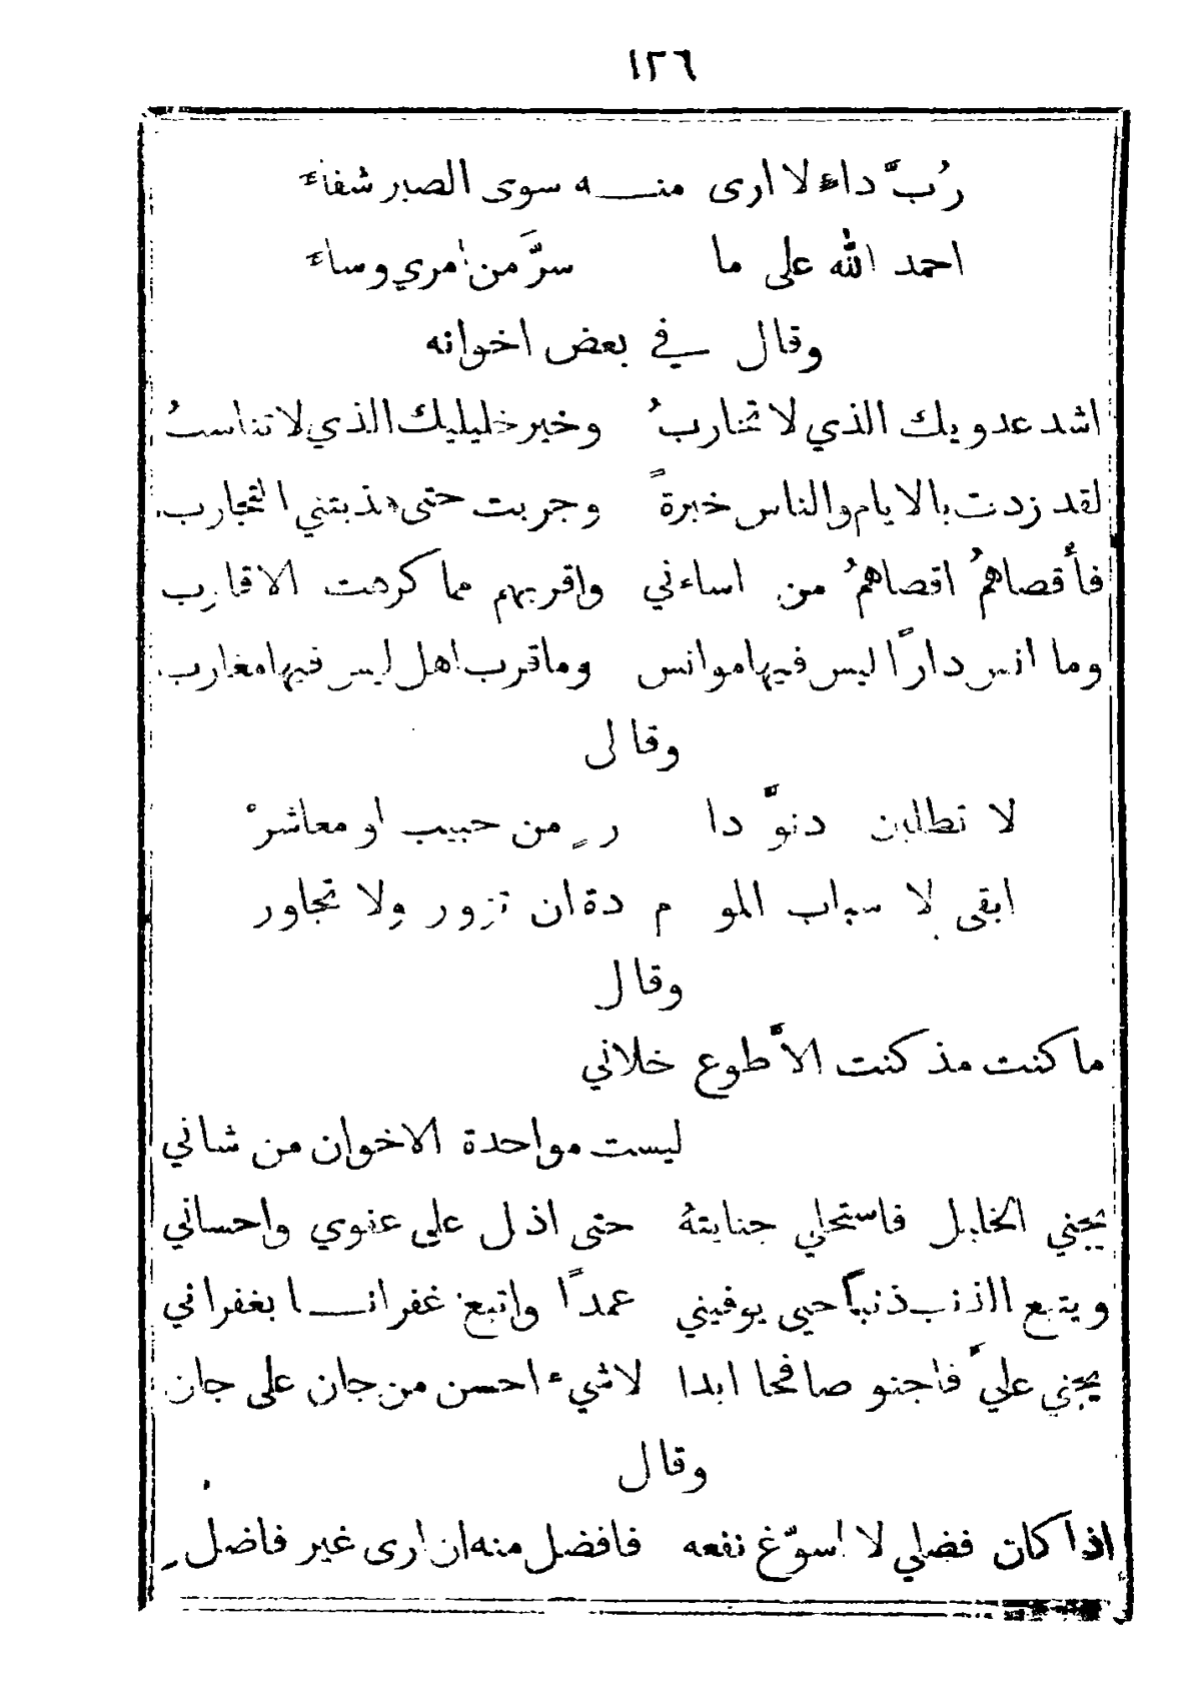 ١٢٦
رُبَّ داء لا ارى منـــه سوى الصبر شفاءَ
احمد الله على ما سرَّ من امري وساءَ
وقال في بعض اخوانه
اشد عدويك الذي لا تحاربُ وخير خليليك الذي لا تناسبُ
لقد زدت بالايام والناس خبرةً وجربت حتى هذبتني التجارب
فأقصاهمُ اقصاهمُ من اساءتي واقربهم مما كرهت الاقارب
وما انس دارًا ليس فيها موانس وما قرب اهل ليس فيها مغارب
وقال
لا تطلبن دنوَّ دا رٍ من حبيب او معاشرْ
ابقى لاسباب المو م دة ان تزور ولا تجاور
وقال
ما كنت مذ كنت الاَّ طوع خلاني
ليست مواحدة الاخوان من شاني
يجني الخليل فاستحلي جنايتهُ حتى اذل على عفوي واحساني
ويتبع الذنب ذنبًا حيى يوفيني عمدًا واتبع غفرانـــا بغفراني
يجني عليَّ فاجنو صافحا ابدا لا شيء احسن من جان على جان
وقال
اذا كان فضلي لا اسوّغ نفعه فافضل منه ان ارى غير فاضلِ